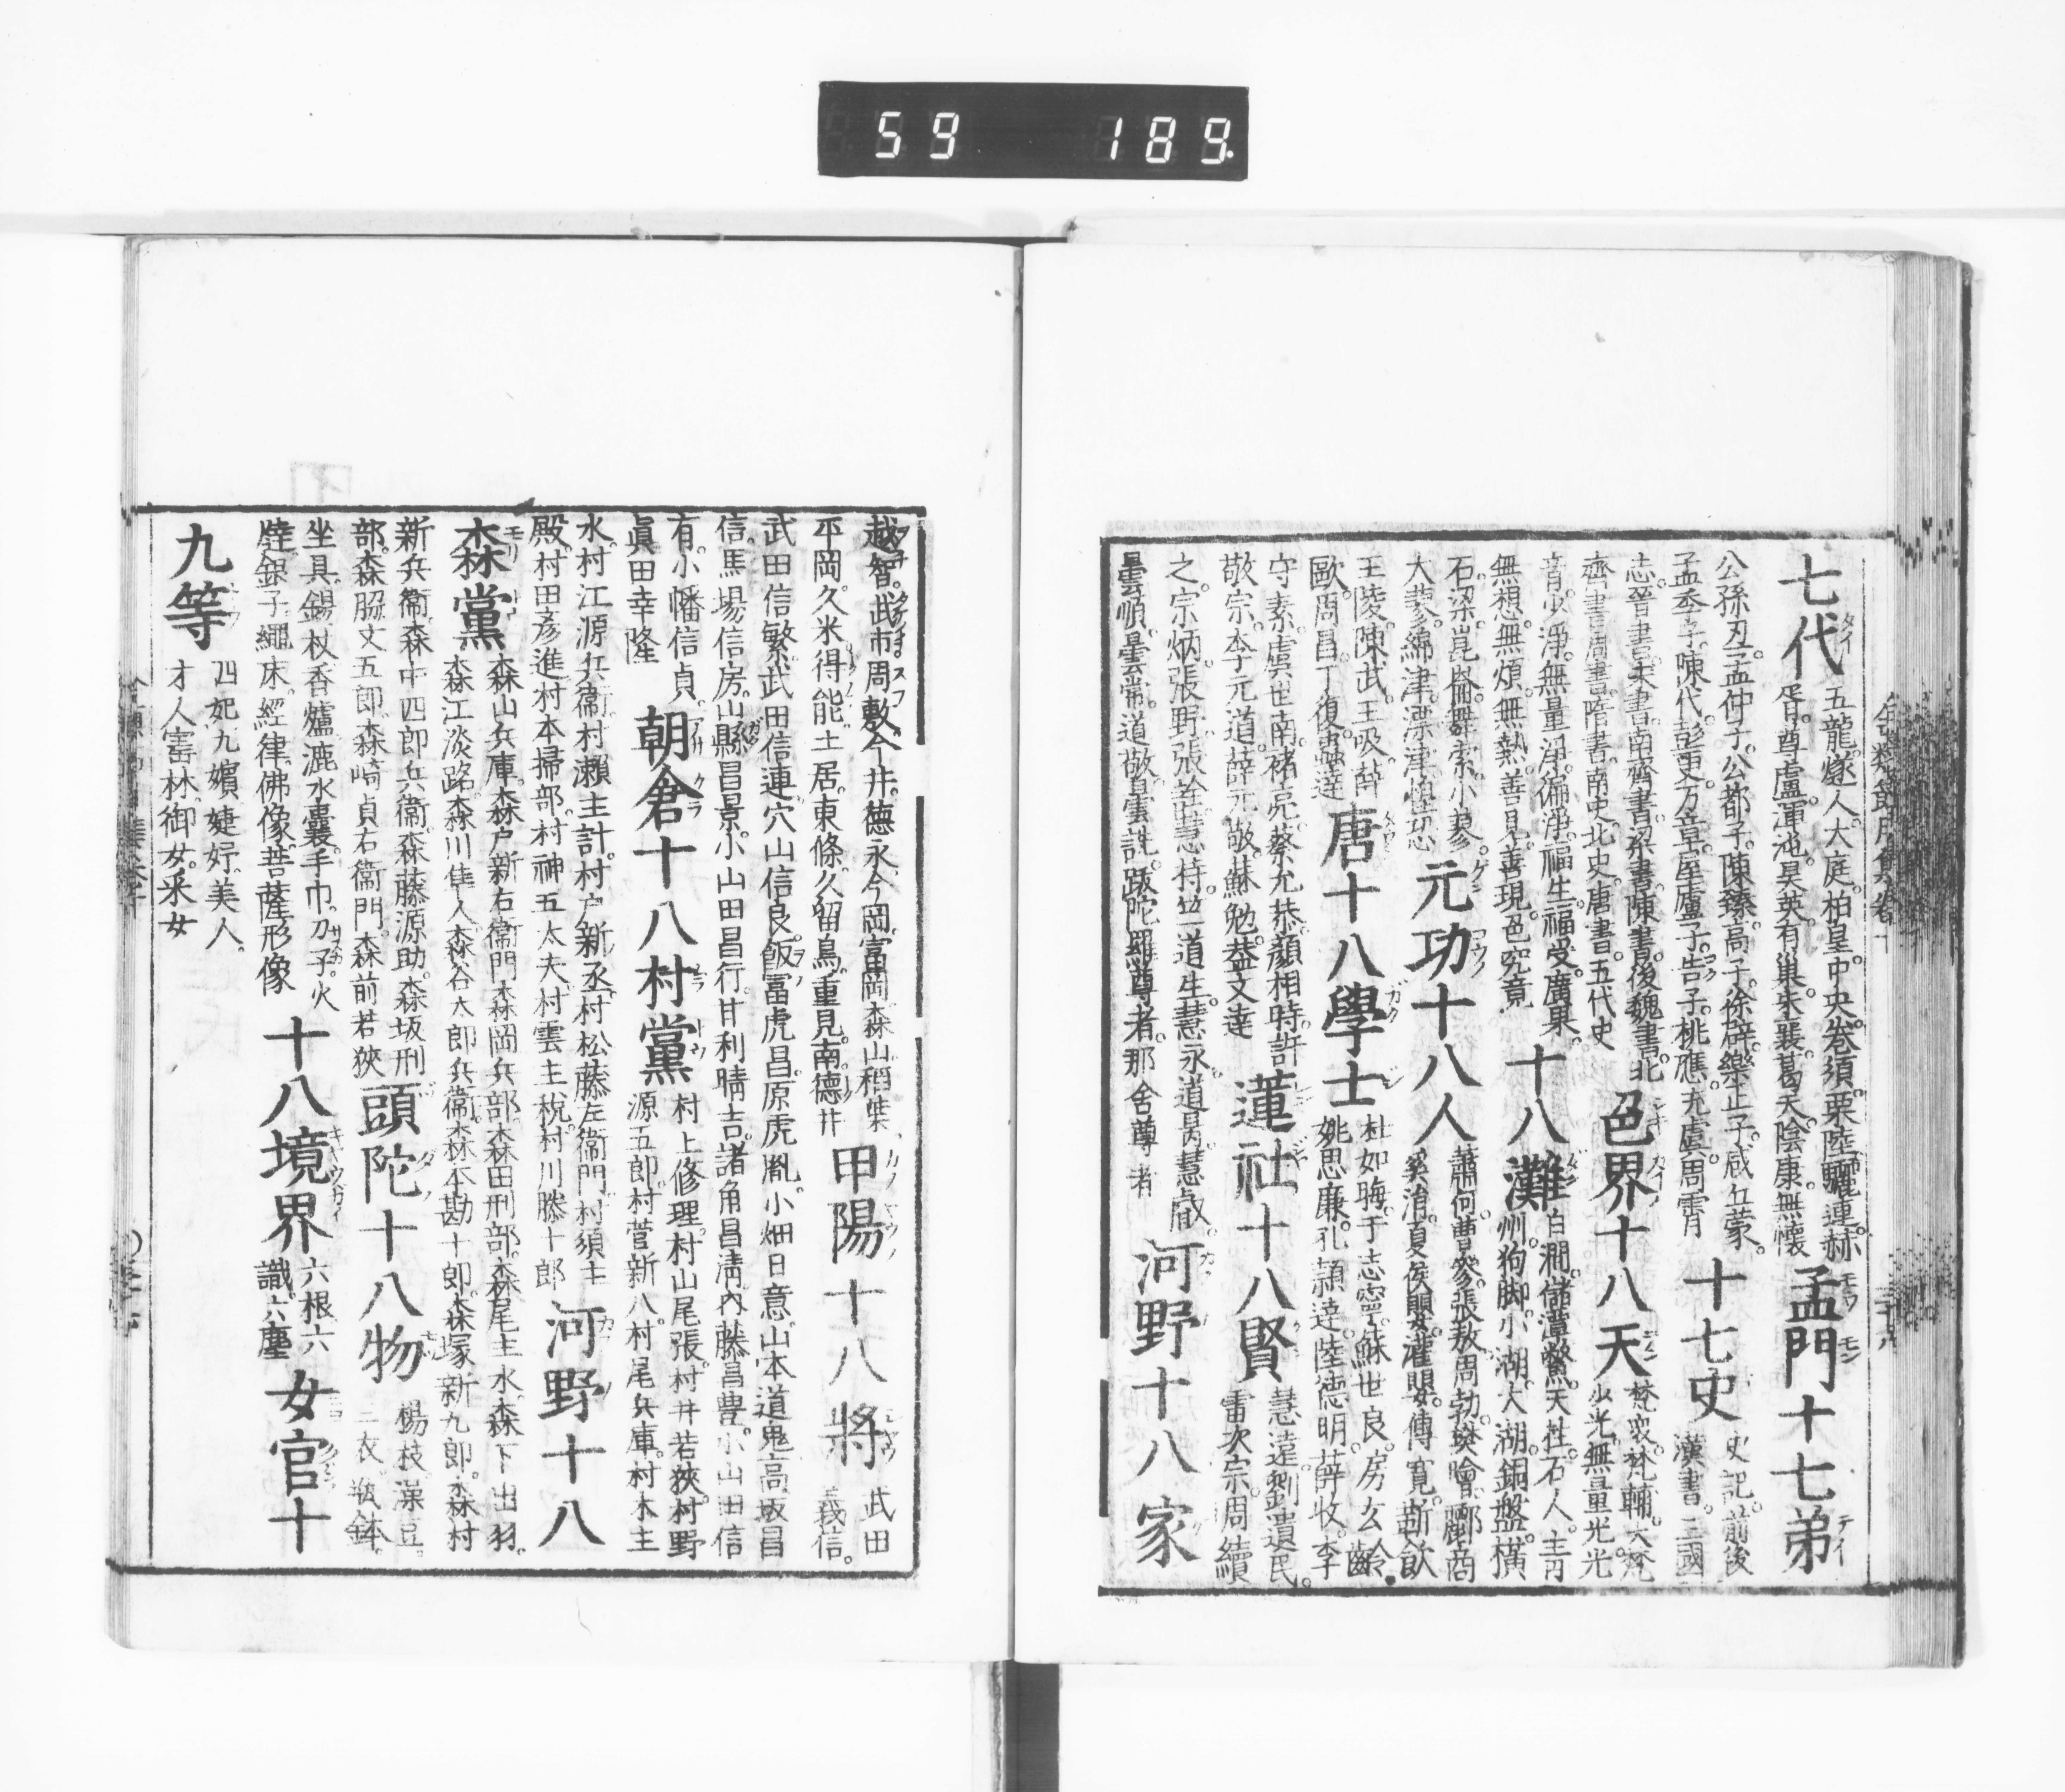 59 189
七代 五龍。燧人。大庭。柏皇。中央。卷須。栗陸。驪連。赫
胥。尊盧。渾沌。昊英。有巢。朱襄。葛天。陰康。無懷
孟門十七弟
公孫丑。孟仲子。公都子。陳臻。高子。徐辟。樂正子。咸丘蒙。
孟季子。陳代。彭更。万章。屋廬子。告子。桃應。充虞。周霄
十七史 史記。前後
漢書。三國
志。晉書。宋書。南齊書。梁書。陳書。後魏書。北
齊書。周書。隋書。南史。北史。唐書。五代史
色界十八天 梵衆。梵輔。大梵
少光。無量光。光
音。少淨。無量淨。徧淨。福生。福受。廣果。
無想。無煩。無熱。善見。善現。色究竟
十八灘 白澗。儲潭。鱉。天柱。石人。主
州。狗脚。小湖。大湖。銅盤。橫
石。梁。崑崙。武索。小蓼。
大蓼。綿津。漂津。惶恐
元功十八人 蕭何。曹參。張敖。周勃。樊噲。酈商
奚涓。夏侯嬰。灌嬰。傅寬。靳歙
王陵。陳武。王吸。薛
歐。周昌。丁復。蟲達
唐十八學士 杜如晦。于志寧。蘇世良。房玄齡。
姚思廉。孔穎達。陸德明。薛收。李
守素。虞世南。褚亮。蔡允恭。顏相時。許
敬宗。李元道。薛元敬。蘇勉。蓋文達
蓮社十八賢 慧遠。劉遺民。
雷次宗。周續
之。宗炳。張野。張詮。慧持。竺道生。慧永。道昺。慧叡。
曇順。曇常。道敬。曇詵。跋陀羅尊者。那舍尊者
河野十八家
越智。武市。周敷。今井。德永。今岡。富岡。森山。稻葉
平岡。久米。得能。土居。東條。久留島。重見。南德井
甲陽十八將 武田
義信。
武田信繁。武田信連。穴山信良。飯冨虎昌。原虎胤。小畑日意。山本道鬼。高坂昌
信。馬場信房。山縣昌景。小山田昌行。甘利晴吉。諸角昌清。内藤昌豊。小山田信
有。小幡信貞。
眞田幸隆
朝倉十八村黨 村上修理。村山尾張。村井若狹。村野
源五郎。村菅新八。村尾兵庫。村木主
水。村江源兵衞。村瀨主計。村戸新丞。村松藤左衞門。村須主
殿。村田彦進。村本掃部。村神五太夫。村雲主稅。村川勝十郎
河野十八
森黨 森山兵庫。森戸新右衞門。森岡兵部。森田刑部。森尾主水。森下出羽。
森江淡路。森川隼人。森谷太郎兵衞。森本勘十郎。森塚新九郎。森村
新兵衞。森中四郎兵衞。森藤源助。森坂刑
部。森脇丈五郎。森崎貞右衞門。森前若狹
頭陀十八物 楊枝。澡豆。
三衣。瓶。鉢。
坐具。錫杖。香爐。漉水囊。手巾。刀子。火
燧。鑷子。繩床。經。律。佛像。菩薩形像
十八境界 六根。六
識。六塵
女官十
九等 四妃。九嬪。婕妤。美人。
才人。寳林。御女。采女